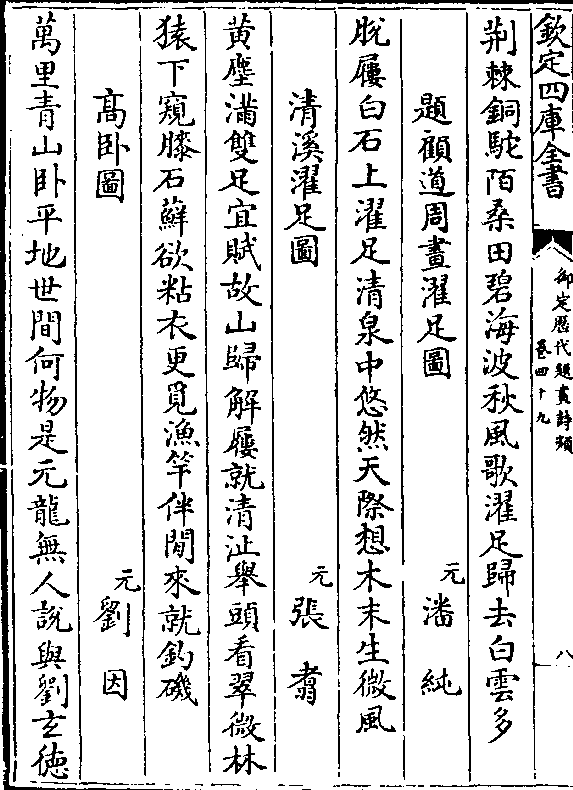 欽定四庫全書
御定歷代題畫詩類
卷四十九
八
荆棘銅駝陌桑田碧海波秋風歌濯足歸去白雲多
題顧道周畫濯足圖
元
潘純
脱屨白石上濯足清泉中悠然天際想木末生微風
清溪濯足圖
元
張翥
黄塵滿雙足宜賦故山歸解屨就清沚舉頭看翠微林
猿下窺臊石蘚欲粘衣更覓漁竿伴閒來就釣磯
高卧圖
元
劉因
萬里青山卧平地世間何物是元龍無人説與劉玄徳